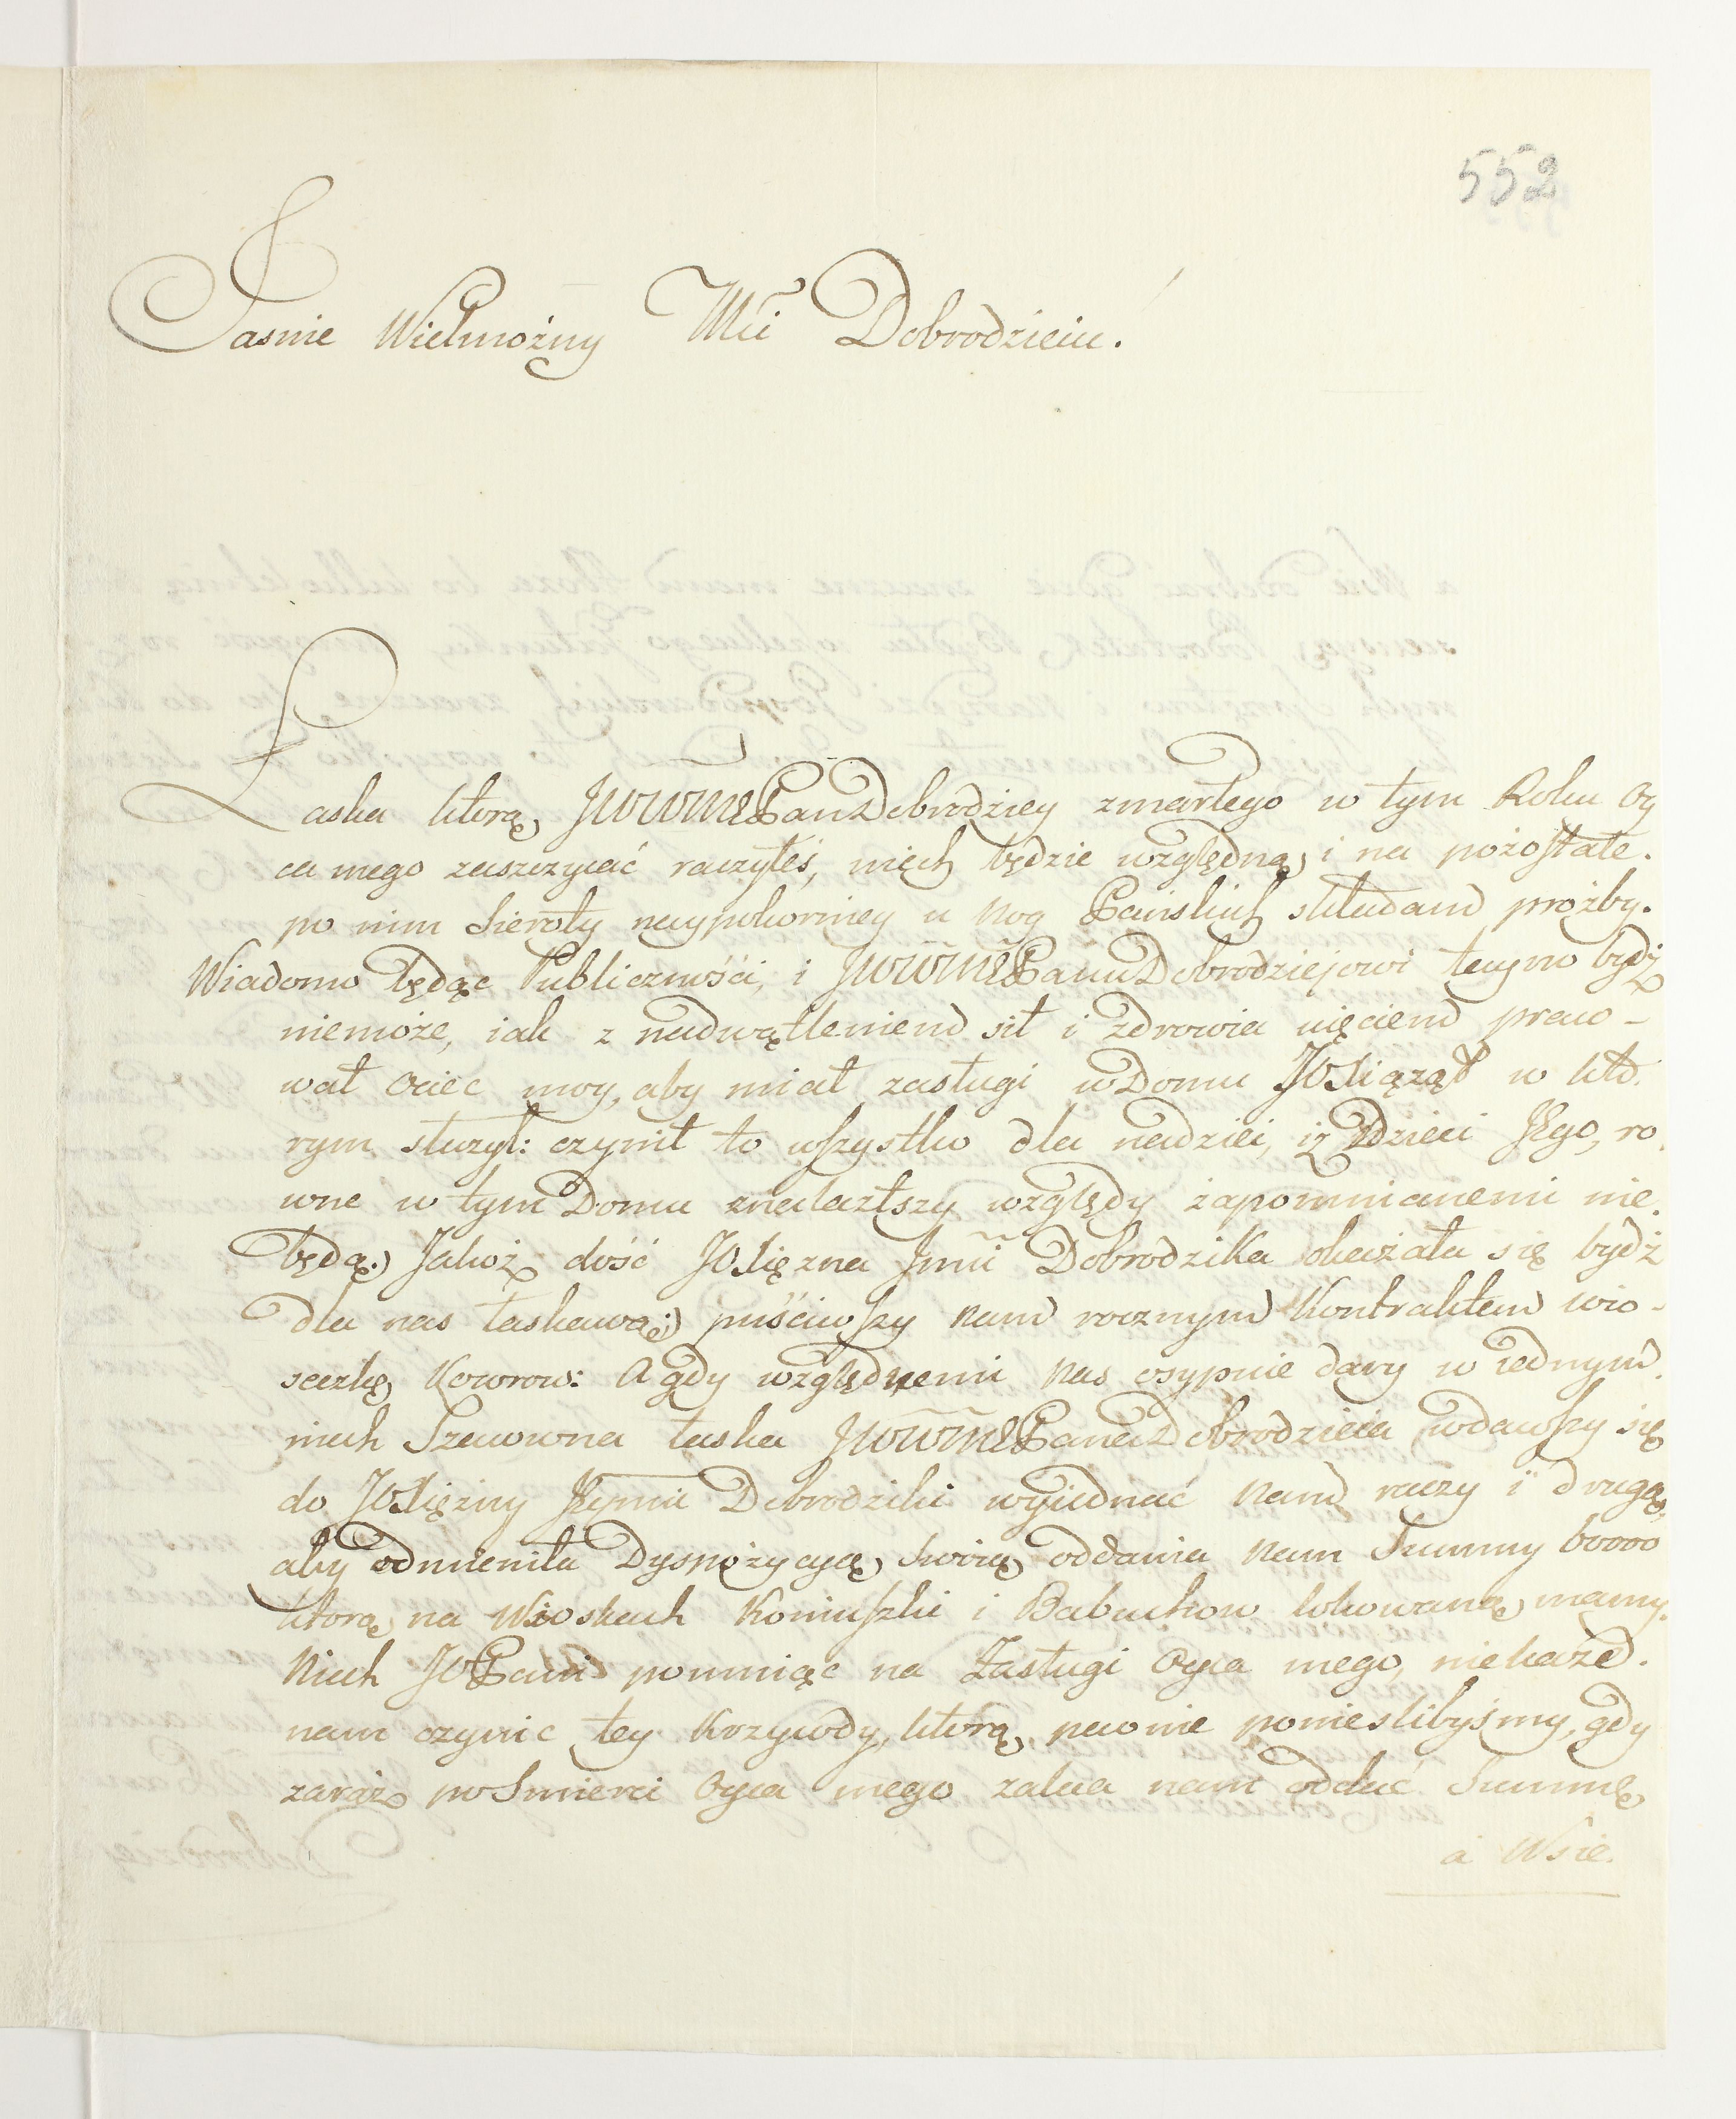 552
Jasnie Wielmożny Mci Dobrodzieiu.
Łaska ktorą JWWMPan Dobrodziey zmarłego w tym Roku Oy
ca mego zaszczycać raczyłeś, niech będzie względną i na pozostałe.
po nim Sieroty naypokorniey u Nog Pańskich składam prożby.
Wiadomo będąc Publiczności, i JWWMPanu Dobrodziejowi tayno bydź
niemoże, iak z nadwątleniem sił i zdrowia uięciem praco-
wał Ociec moy, aby miał zasługi w Domu JOXiążąt w któ.
rym służył: czynił to wszystko dla nadziei, iż Dzieci Jego, ro
wne w tym Domu znalazłszy względy zapomnianemi nie.
będą. Jakoż dość JOXiężna Jmci Dobrodzika okazała się bydź
dla nas łaskawą: puściwszy nam rocznym Kontraktem wio-
seczkę Kowrow: A gdy względnemi nas osypuie dary w iednym.
niech Szanowna łaska JWWMPana Dobrodzieia wdawszy się
do JOXiężny Jeymci Dobrodziki wyiednać nam raczy i drugą,
aby odmieniła Dyspozycyą Swoią oddania nam Summy 60000
ktorą na Wioskach Koniuszki i Babuchow lokowaną mamy.
Niech JOPani pomniąc na Zasługi Oyca mego, niekaże.
nam czynic tey Krzywdy, ktorą pewnie ponieslibyśmy, gdy
zaraz po Smierci Oyca mego zaleca nam oddać Summę
a Wsie.